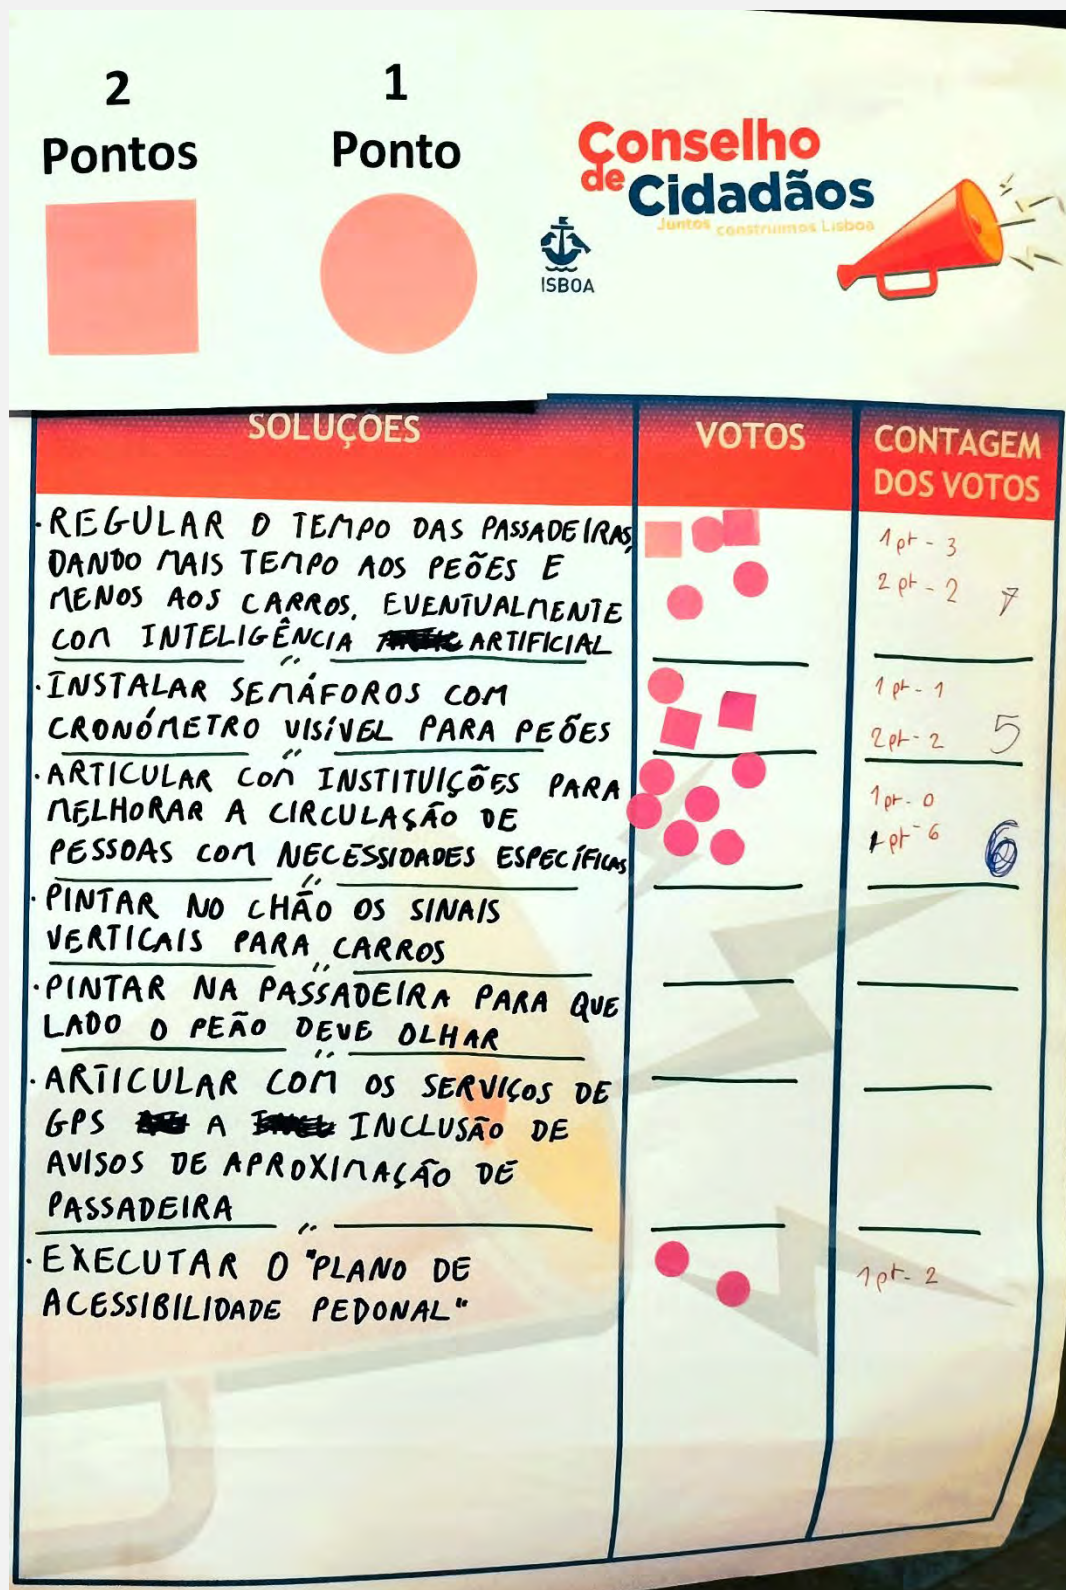 2
Pontos
1
Ponto
Conselho
de Cidadãos
Juntos construímos Lisboa
ISBOA
SOLUÇÕES
VOTOS
CONTAGEM
DOS VOTOS
· REGULAR O TEMPO DAS PASSADEIRAS,
DANDO MAIS TEMPO AOS PEÕES E
MENOS AOS CARROS. EVENTUALMENTE
COM INTELIGÊNCIA ARTIFICIAL
1 pt - 3
2 pt - 2 7
· INSTALAR SEMÁFOROS COM
CRONÓMETRO VISÍVEL PARA PEÕES
1 pt - 1
2 pt - 2 5
· ARTICULAR COM INSTITUIÇÕES PARA
MELHORAR A CIRCULAÇÃO DE
PESSOAS COM NECESSIDADES ESPECÍFICAS
1 pt - 0
pt - 6 6
· PINTAR NO CHÃO OS SINAIS
VERTICAIS PARA CARROS
· PINTAR NA PASSADEIRA PARA QUE
LADO O PEÃO DEVE OLHAR
· ARTICULAR COM OS SERVIÇOS DE
GPS A INCLUSÃO DE
AVISOS DE APROXIMAÇÃO DE
PASSADEIRA
· EXECUTAR O "PLANO DE
ACESSIBILIDADE PEDONAL"
1 pt - 2